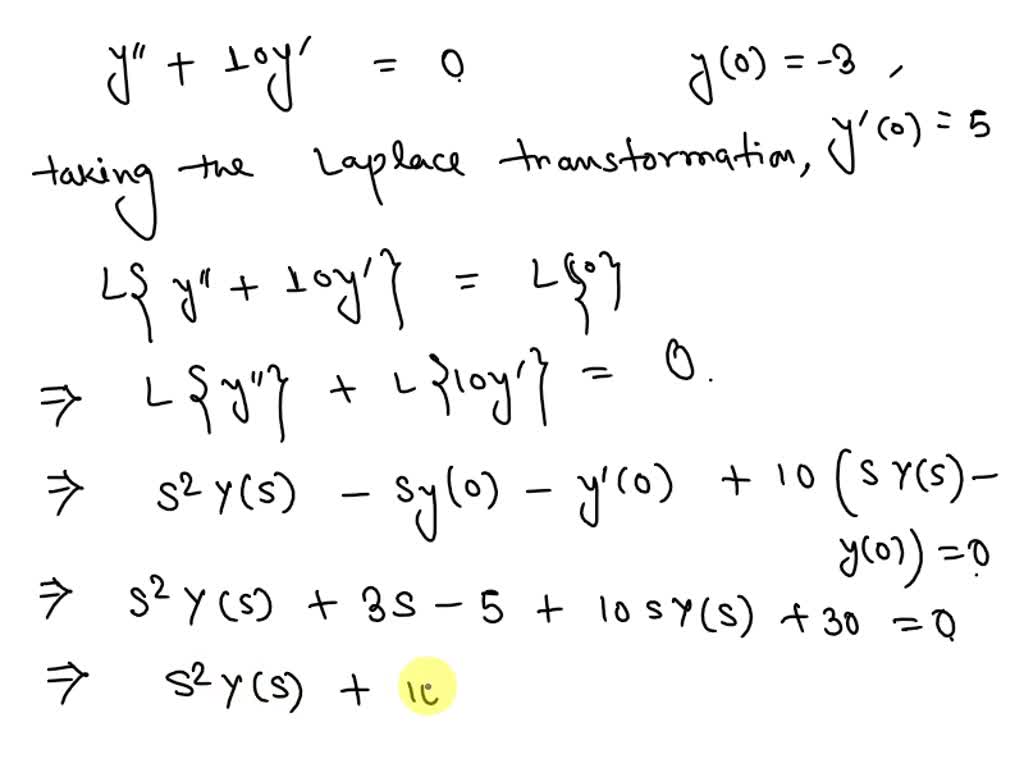 y'' + 10y' = 0 y(0) = -3 ,
taking the Laplace transformation, y'(0) = 5
L{ y'' + 10y' } = L{0}
⇒ L{y''} + L{10y'} = 0.
⇒ S²Y(S) - Sy(0) - y'(0) + 10 (S Y(S) -
y(0)) = 0
⇒ S²Y(S) + 3S - 5 + 10 S Y(S) + 30 = 0
⇒ S²Y(S) + 10